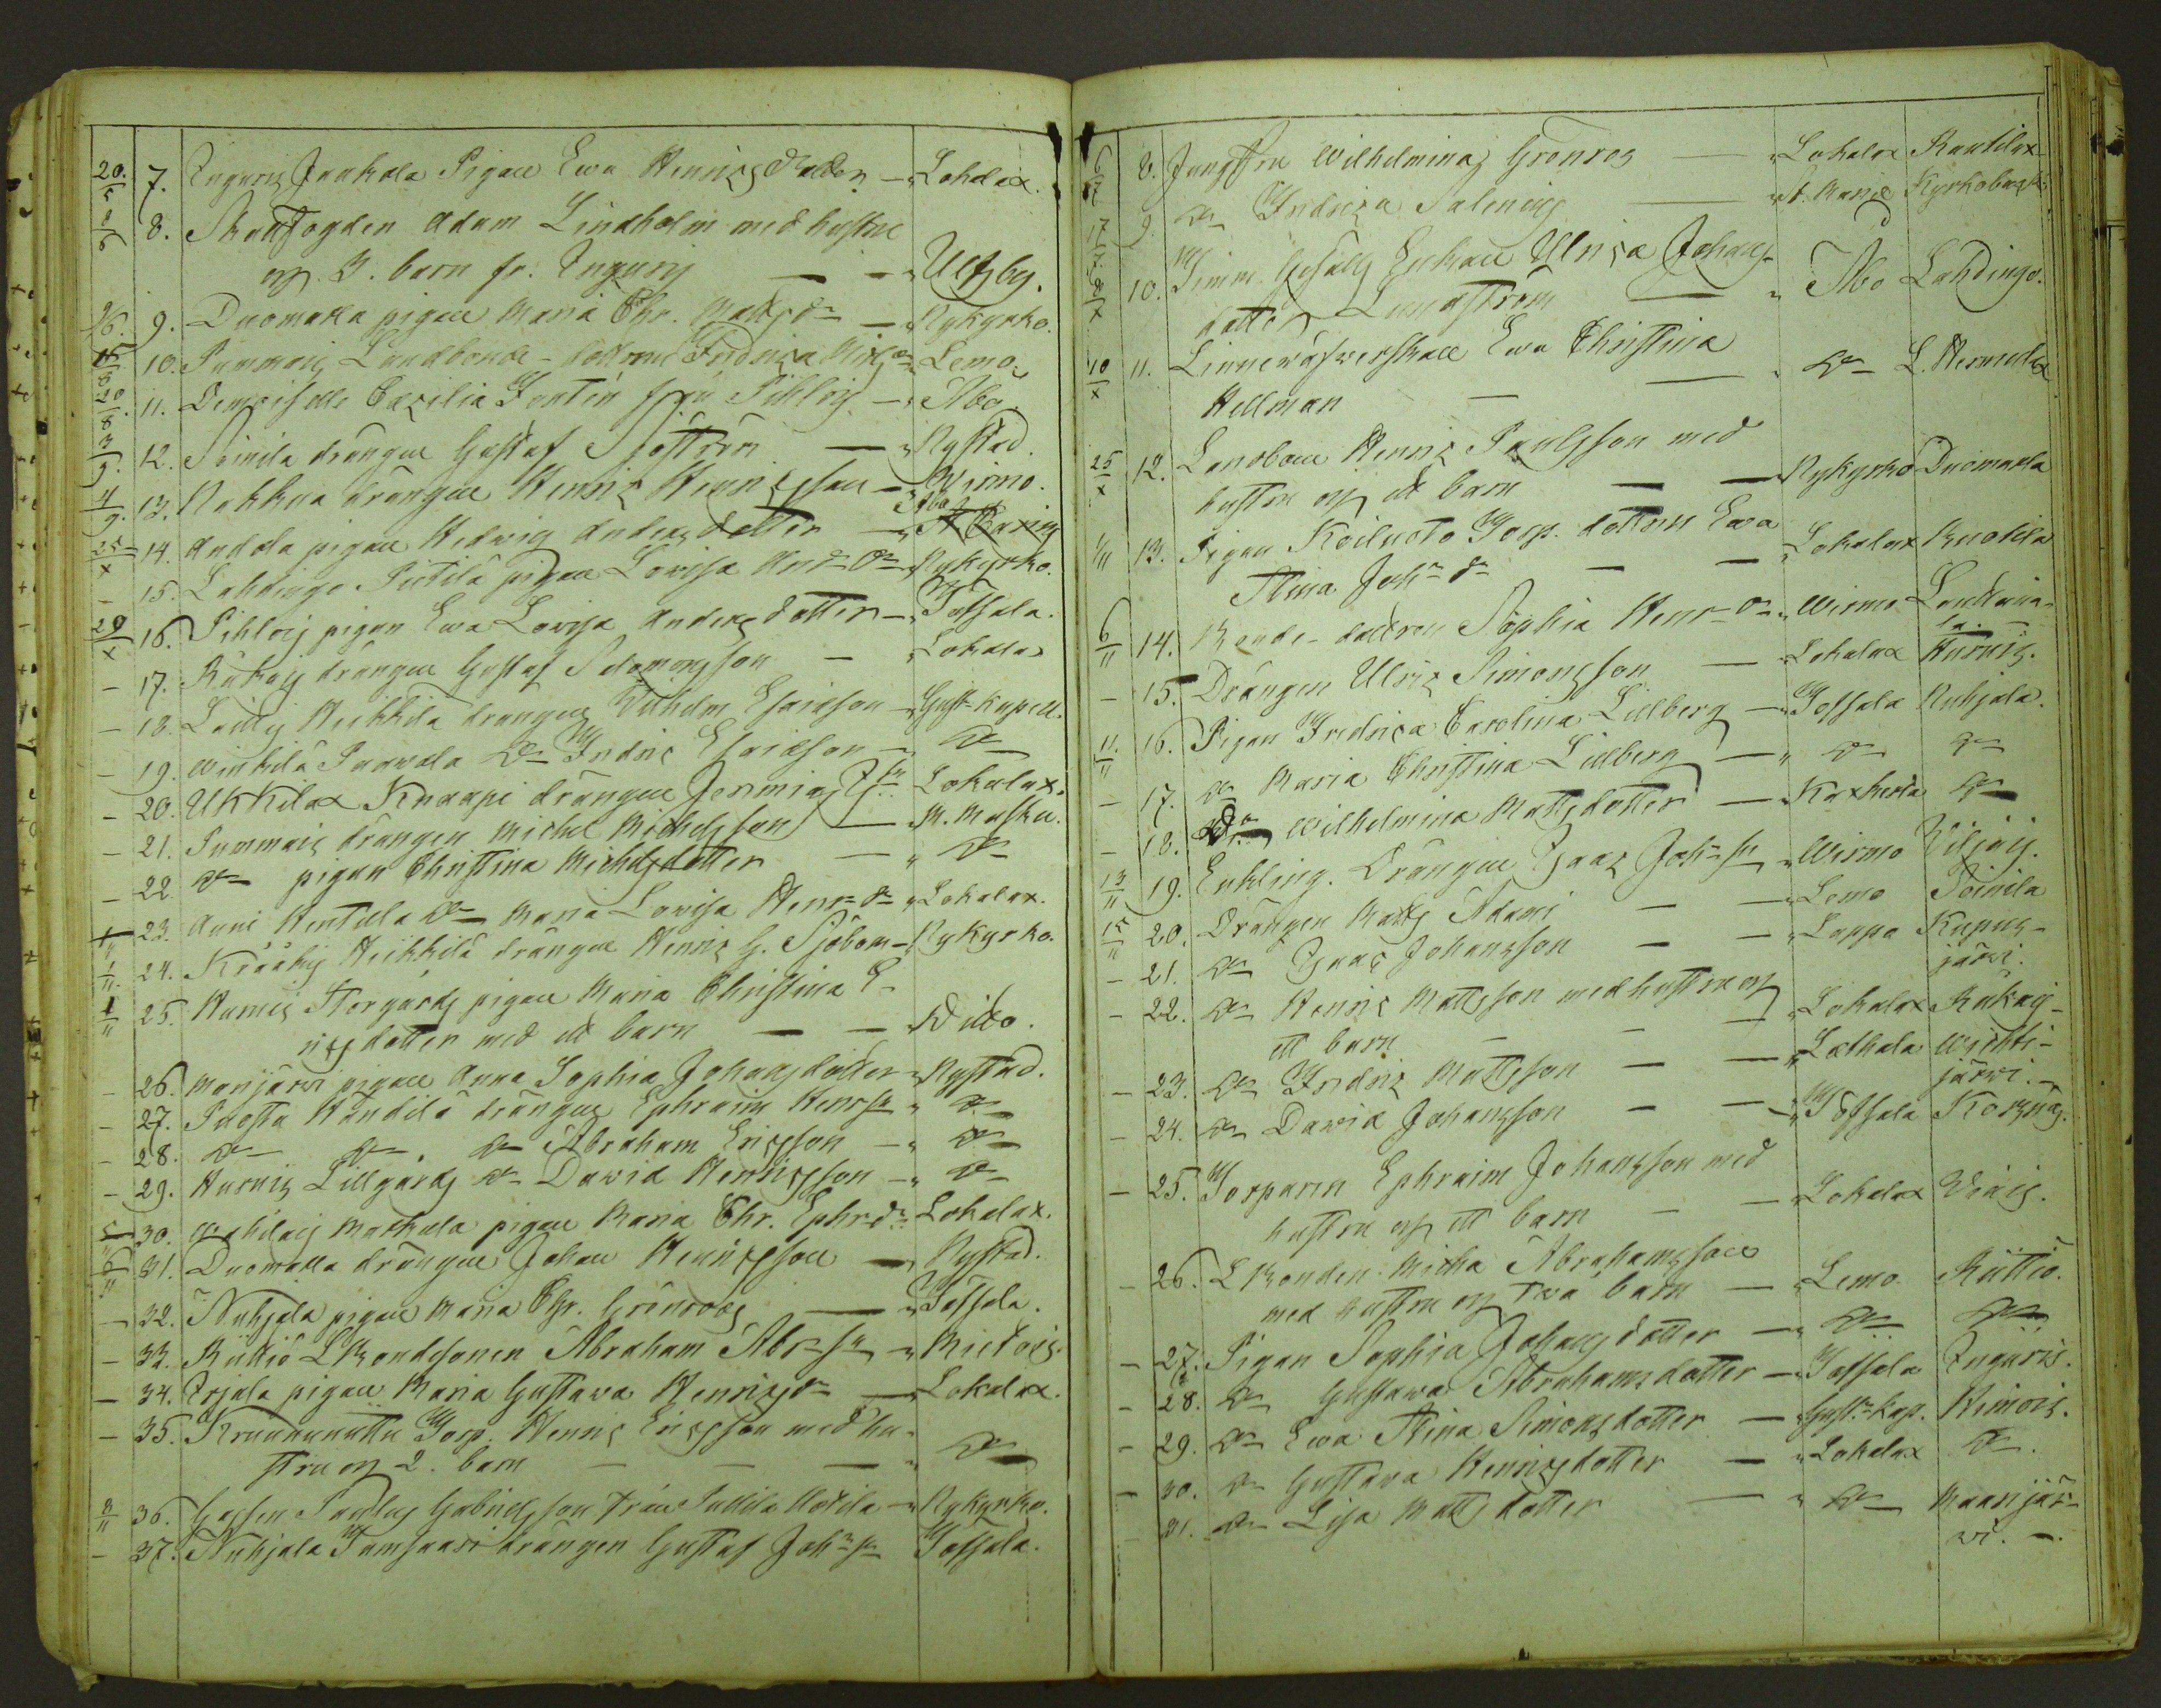 20/5 7. Inguris Jaakola Pigan Ewa Henricsdotter — Lokalax.
8. Skallfogden Adam Lindholm med hustru
och 3. barn fr. Inguris — — Wehby.
9. Duomalla pigan Maria Chr. Mattsdr — Nykyrko.
10. Summais Landbonde-dottren Fredrica — Lemo.
11. Demoiselle Cæcilia Fontén från Pihlois — Åbo.
12. Soinila drängen Gustaf Sjöström — Nystad.
4/9. 13. Rahkua drängen Henric Henricsson — Wirmo.
Åbo
25/X 14. Andola pigan Hedwig Andersdotter — St Karins
- 15. Lahdingo Pietilä pigan Lovisa And. dr Nykyrko.
29/X 16. Pihlois pigan Ewa Lovisa Andersdotter — Töfsala.
- 17. Räkois drängen Gustaf Salomonsson — Lokalax
- 18. Laitis Heikkilä drängen Wilhelm Esaiasson — Gust. kapell.
- 19. Winkilä Paavola Do Fredric Esaiasson — Do
- 20. Ukkilax Knaapi drängen Jeremias — Lokalax.
- 21. Summais drängen Michel Michelsson — M. Masku.
- 22 Do pigan Christina Michelsdotter — " Do
23. Anni Hentula Do Maria Lovisa Henr. dr " Lokalax.
1/11. 24. Kråäkis Heikkilä drängen Henric G. Sjöbom — Nykyrko.
1/11 25. Humis Storgårds pigan Maria Christina E-
ricsdotter med ett barn — — Dito.
- 26. Manjärwi pigan Anna Sophia Johansdotter — Nystad.
- 27. Palosta Kändilä drängen Ephraim Henrsn " Do
- 28. Do Do Do Abraham Ericsson — " Do
- 29. Hurnis Lillgårds Do David Henricsson — " Do
30. Wahilais Mattula pigan Maria Chr. Ephr. dr. Lokalax.
6/11 31. Duomalla drängen Johan Henricsson — Nystad.
- 32. Nuhjala pigan Maria Chr. Grönroos — Töfsala.
- 33. Rüttiö LBondesonen Abraham Abr. sn — Mietois.
- 34. Irjala pigan Maria Gustava Henricsdr — Lokalax.
- 35. Torp. Henric Ericsson med hu-
stru och 2. barn — — — " Do
8/11 36. Gossen Paulus Gabrielsson från — Nykyrko.
- 37. Nuhjala Tamsaari drängen Gustaf Joh. sn Töfsala.
8. Jungfrun Wilhelmina Grönros — Lokalax Rautilax
9. Do Fredrica Salenius — St. Marie Kyrkoboställe
10. Timm. Gesälls Enkan Ulrica Johans-
dotter Lundström — " Åbo Lahdingo.
10/X 11. Linnewäfwerskan Ewa Christina
Hellman — — " Do L. Hermulax
25/X 12. Landbon Henric Paulsson med
hustru och ett barn — — Nykyrko Duomalla
1/11 13. Pigan Koiluoto Torp. dottren Ewa
Stina Joh. dr — — Lokalax Ruokila
6/11 14. Bonde-dottren Sophia Henr. dr " Wirmo Lautania-
la.
- 15. Drängen Ulric Simonsson — Lokalax Hurnis.
11./11 16. Pigan Fredrica Carolina Lillberg — Töfsala Nuhjala.
- 17. Do Maria Christina Lillberg — " Do Do
- 18. Do Wilhelmina Mattsdotter — Kaxkerta Do
13/11 19. Enkling. Drängen Isaac Joh. sn " Wirmo Wiljais.
15/11 20. Drängen Matts Adami — — Lemo Soinila
- 21. Do Isaac Johansson — — " Lappo Kupus-
järwi.
- 22. Do Henric Mattsson med hustru och
ett barn — — — Lokalax Räkois
- 23. Do Fredric Mattsson — — Lethala Wichti-
järwi.
- 24. Do David Johansson — — Töfsala
- 25. Torparen Ephraim Johansson med
hustru och ett barn — — Lokalax
- 26. LBonden Micka Abrahamsson
med hustru och två barn — Lemo Rüttiö.
- 27. Pigan Sophia Johansdotter — " Do Do
- 28. Do Gustawa Abrahamsdotter — Töfsala Inguris.
- 29. Do Ewa Stina Simonsdotter — Gust. kap. Himois.
- 30. Do Gustava Henricsdotter — Lokalax Do.
- 31. Do Lisa Mattsdotter — " Do Maanjär-
wi. —